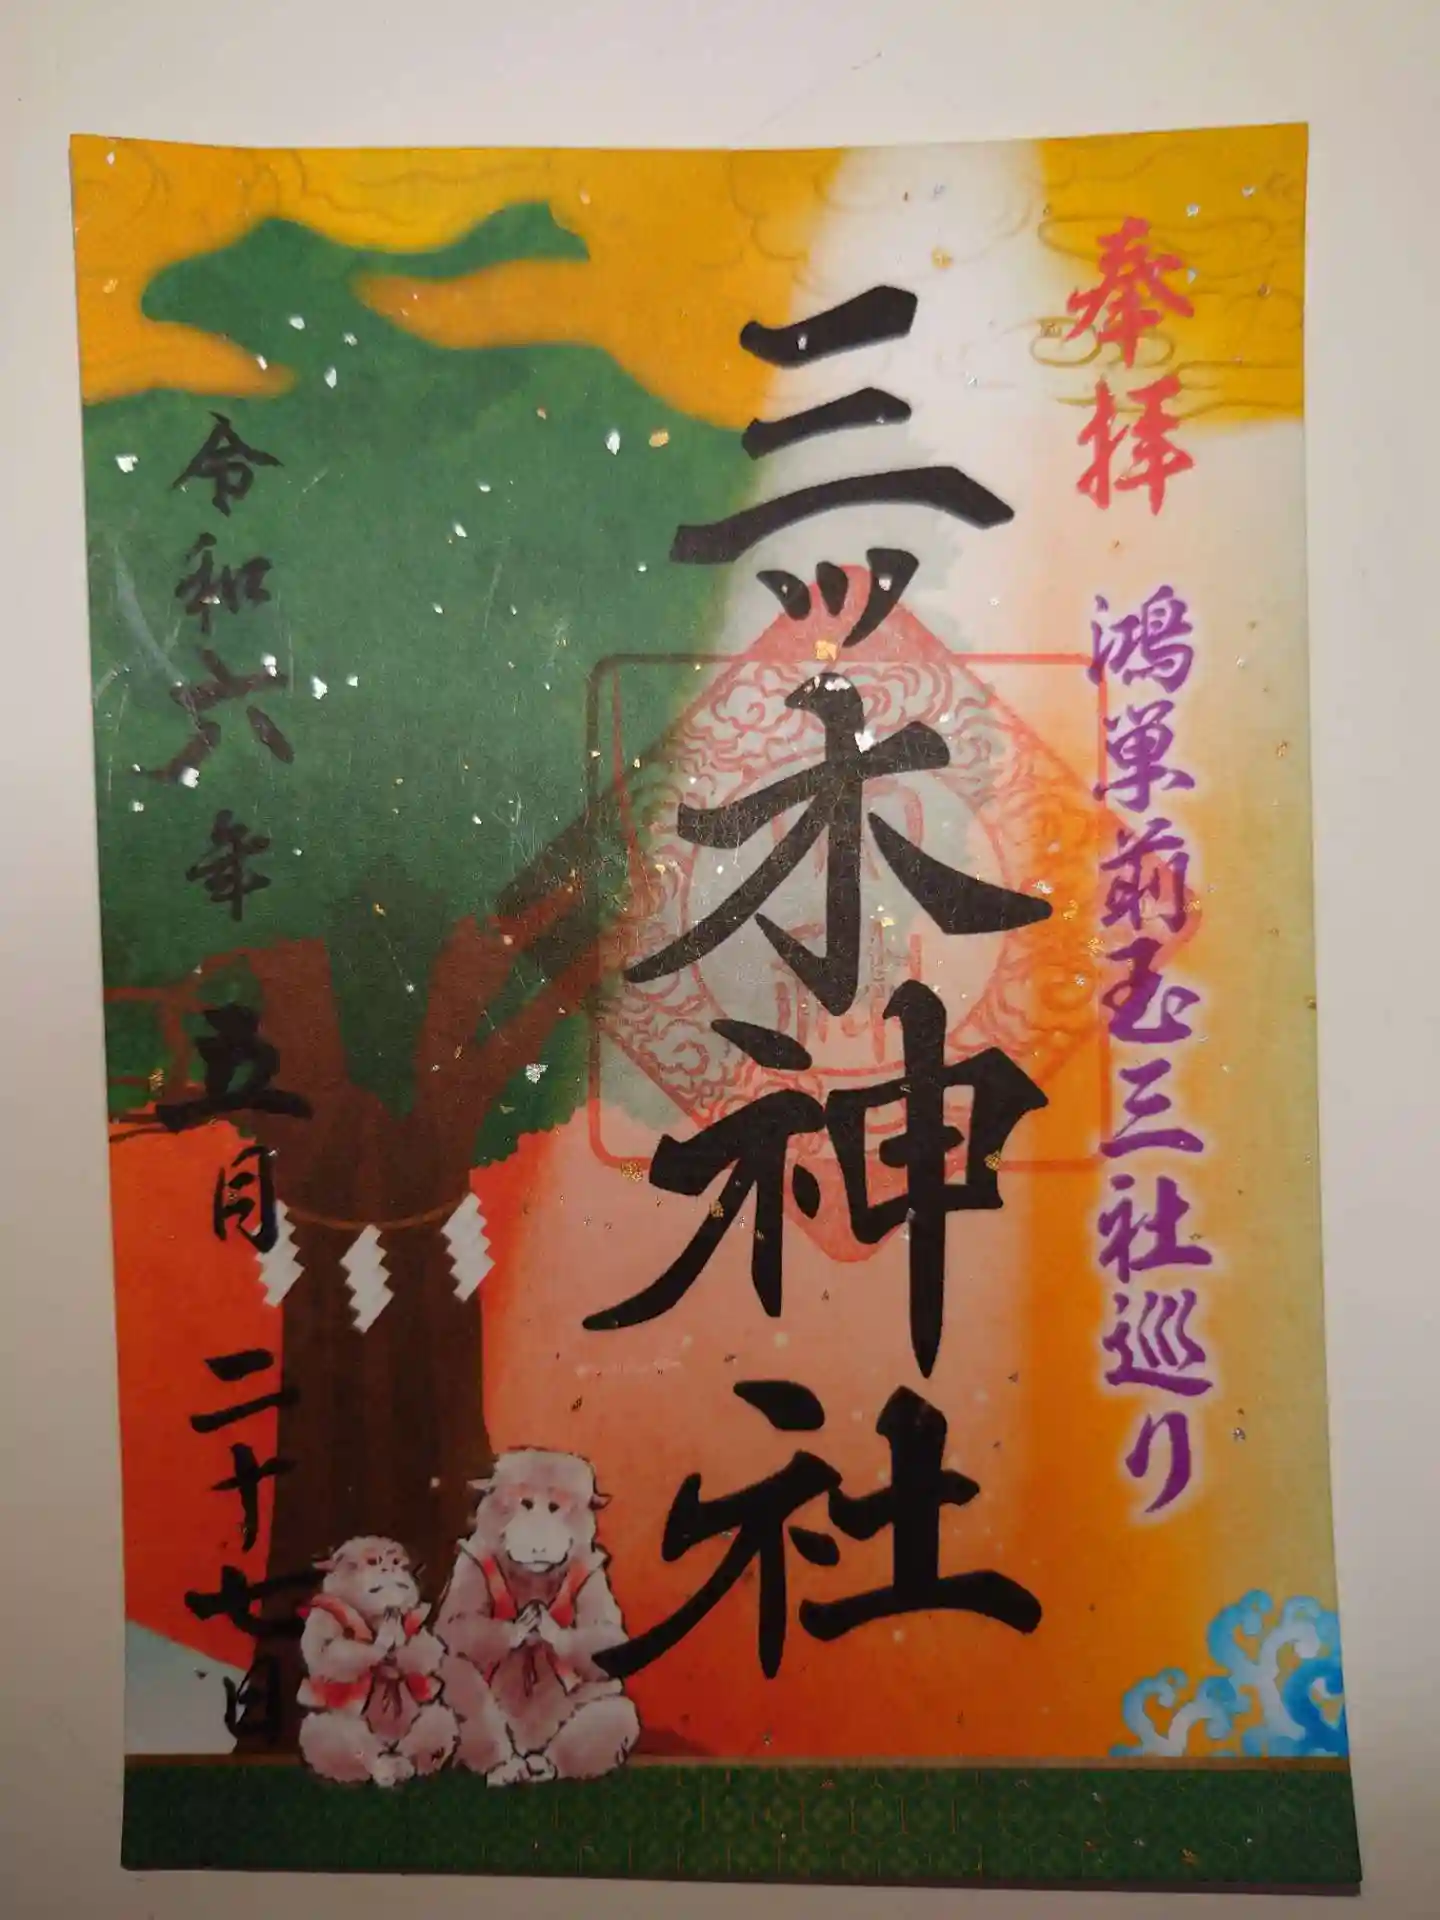 奉拝
鴻巣前玉三社巡り
三ツ木神社
令和六年五月二十七日